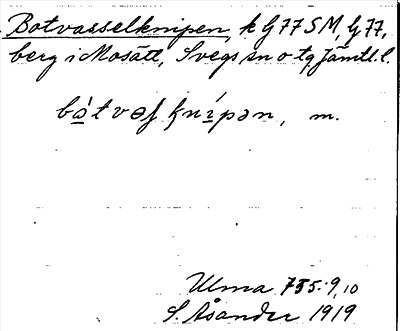 Botvasselknipen, k G77SM, G77,
berg i Mosätt, Svegs sn o tg Jämtl. l.
bo̱t vəʃ kní̱pən, m.
Ulma 755:9,10
S. Åsander 1919